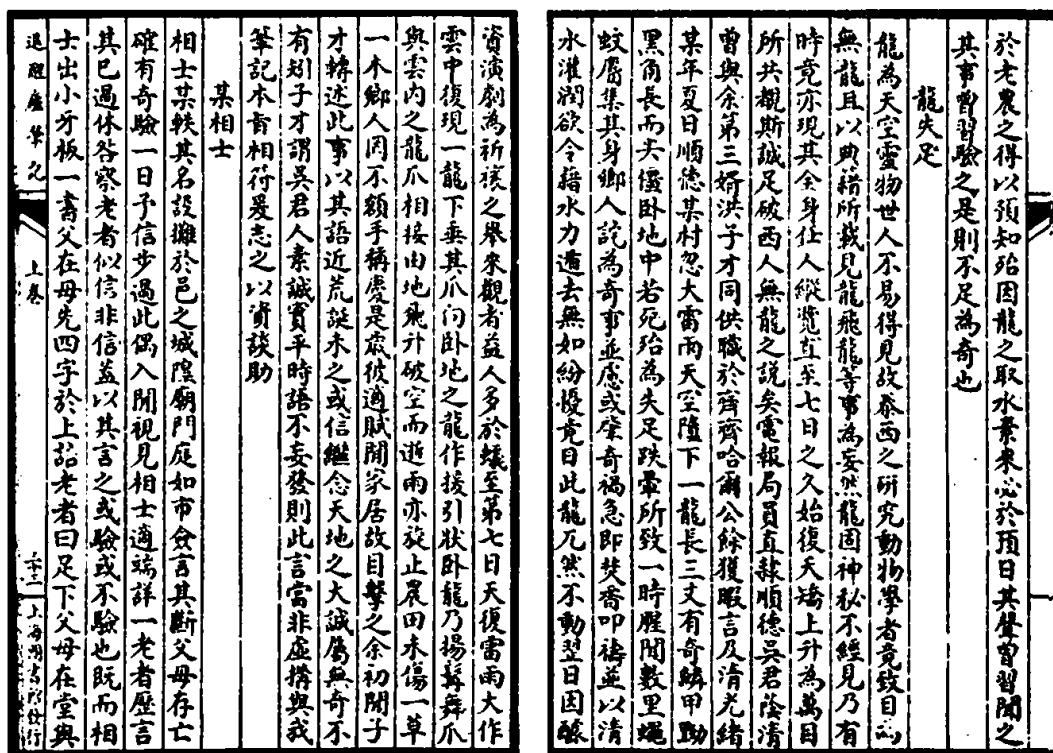 於老農之得以預知殆因龍之取水業來必於預日其聲曾習聞之
其事曾習驗之是則不足為奇也
龍失足
龍為天空靈物世人不易得見故泰西之研究動物學者竟致目為
無龍且以典籍所載見龍飛龍等事為妄然龍固神秘不經見乃有
時竟亦現其全身任人縱覽直至七日之久始復天矯上升為萬目
所共覩斯誠足破西人無龍之說矣電報局員直隸順德吳君蔭清
曾與余第三婿洪子才同供職於齊齊哈爾公餘獲暇言及清光緒
某年夏日順德某村忽大雷雨天空墮下一龍長三丈有奇鱗甲黝
黑角長而尖僵卧地中若死殆為失足跌暈所致一時腥聞數里蠅
蚊麕集其身鄉人詫為奇事並慮或肇奇禍急即焚香叩禱並以清
水灌潤欲令藉水力遁去無如紛擾竟日此龍兀然不動翌日因醵
資演劇為祈禳之舉來觀者益人多於蟻至第七日天復雷雨大作
雲中復現一龍下垂其爪向卧地之龍作援引狀卧龍乃揚鬐舞爪
與雲內之龍爪相接由地飛升破空而逝雨亦旋止農田未傷一草
一木鄉人罔不額手稱慶是歲彼適賦閒家居故目擊之余初聞子
才轉述此事以其語近荒誕未之或信繼念天地之大誠屬無奇不
有矧子才謂吳君人素誠實平時語不妄發則此言當非虛搆與我
筆記本旨相符爰志之以資談助
某相士
相士某軼其名設攤於邑之城隍廟門庭如市僉言其斷父母存亡
確有奇驗一日予信步過此偶入閒視見相士適端詳一老者歷言
其已過休咎察老者似信非信蓋以其言之或驗或不驗也既而相
士出小牙板一書父在母先四字於上詔老者曰足下父母在堂與
退醒廬筆記
上卷
上海圖書館發行